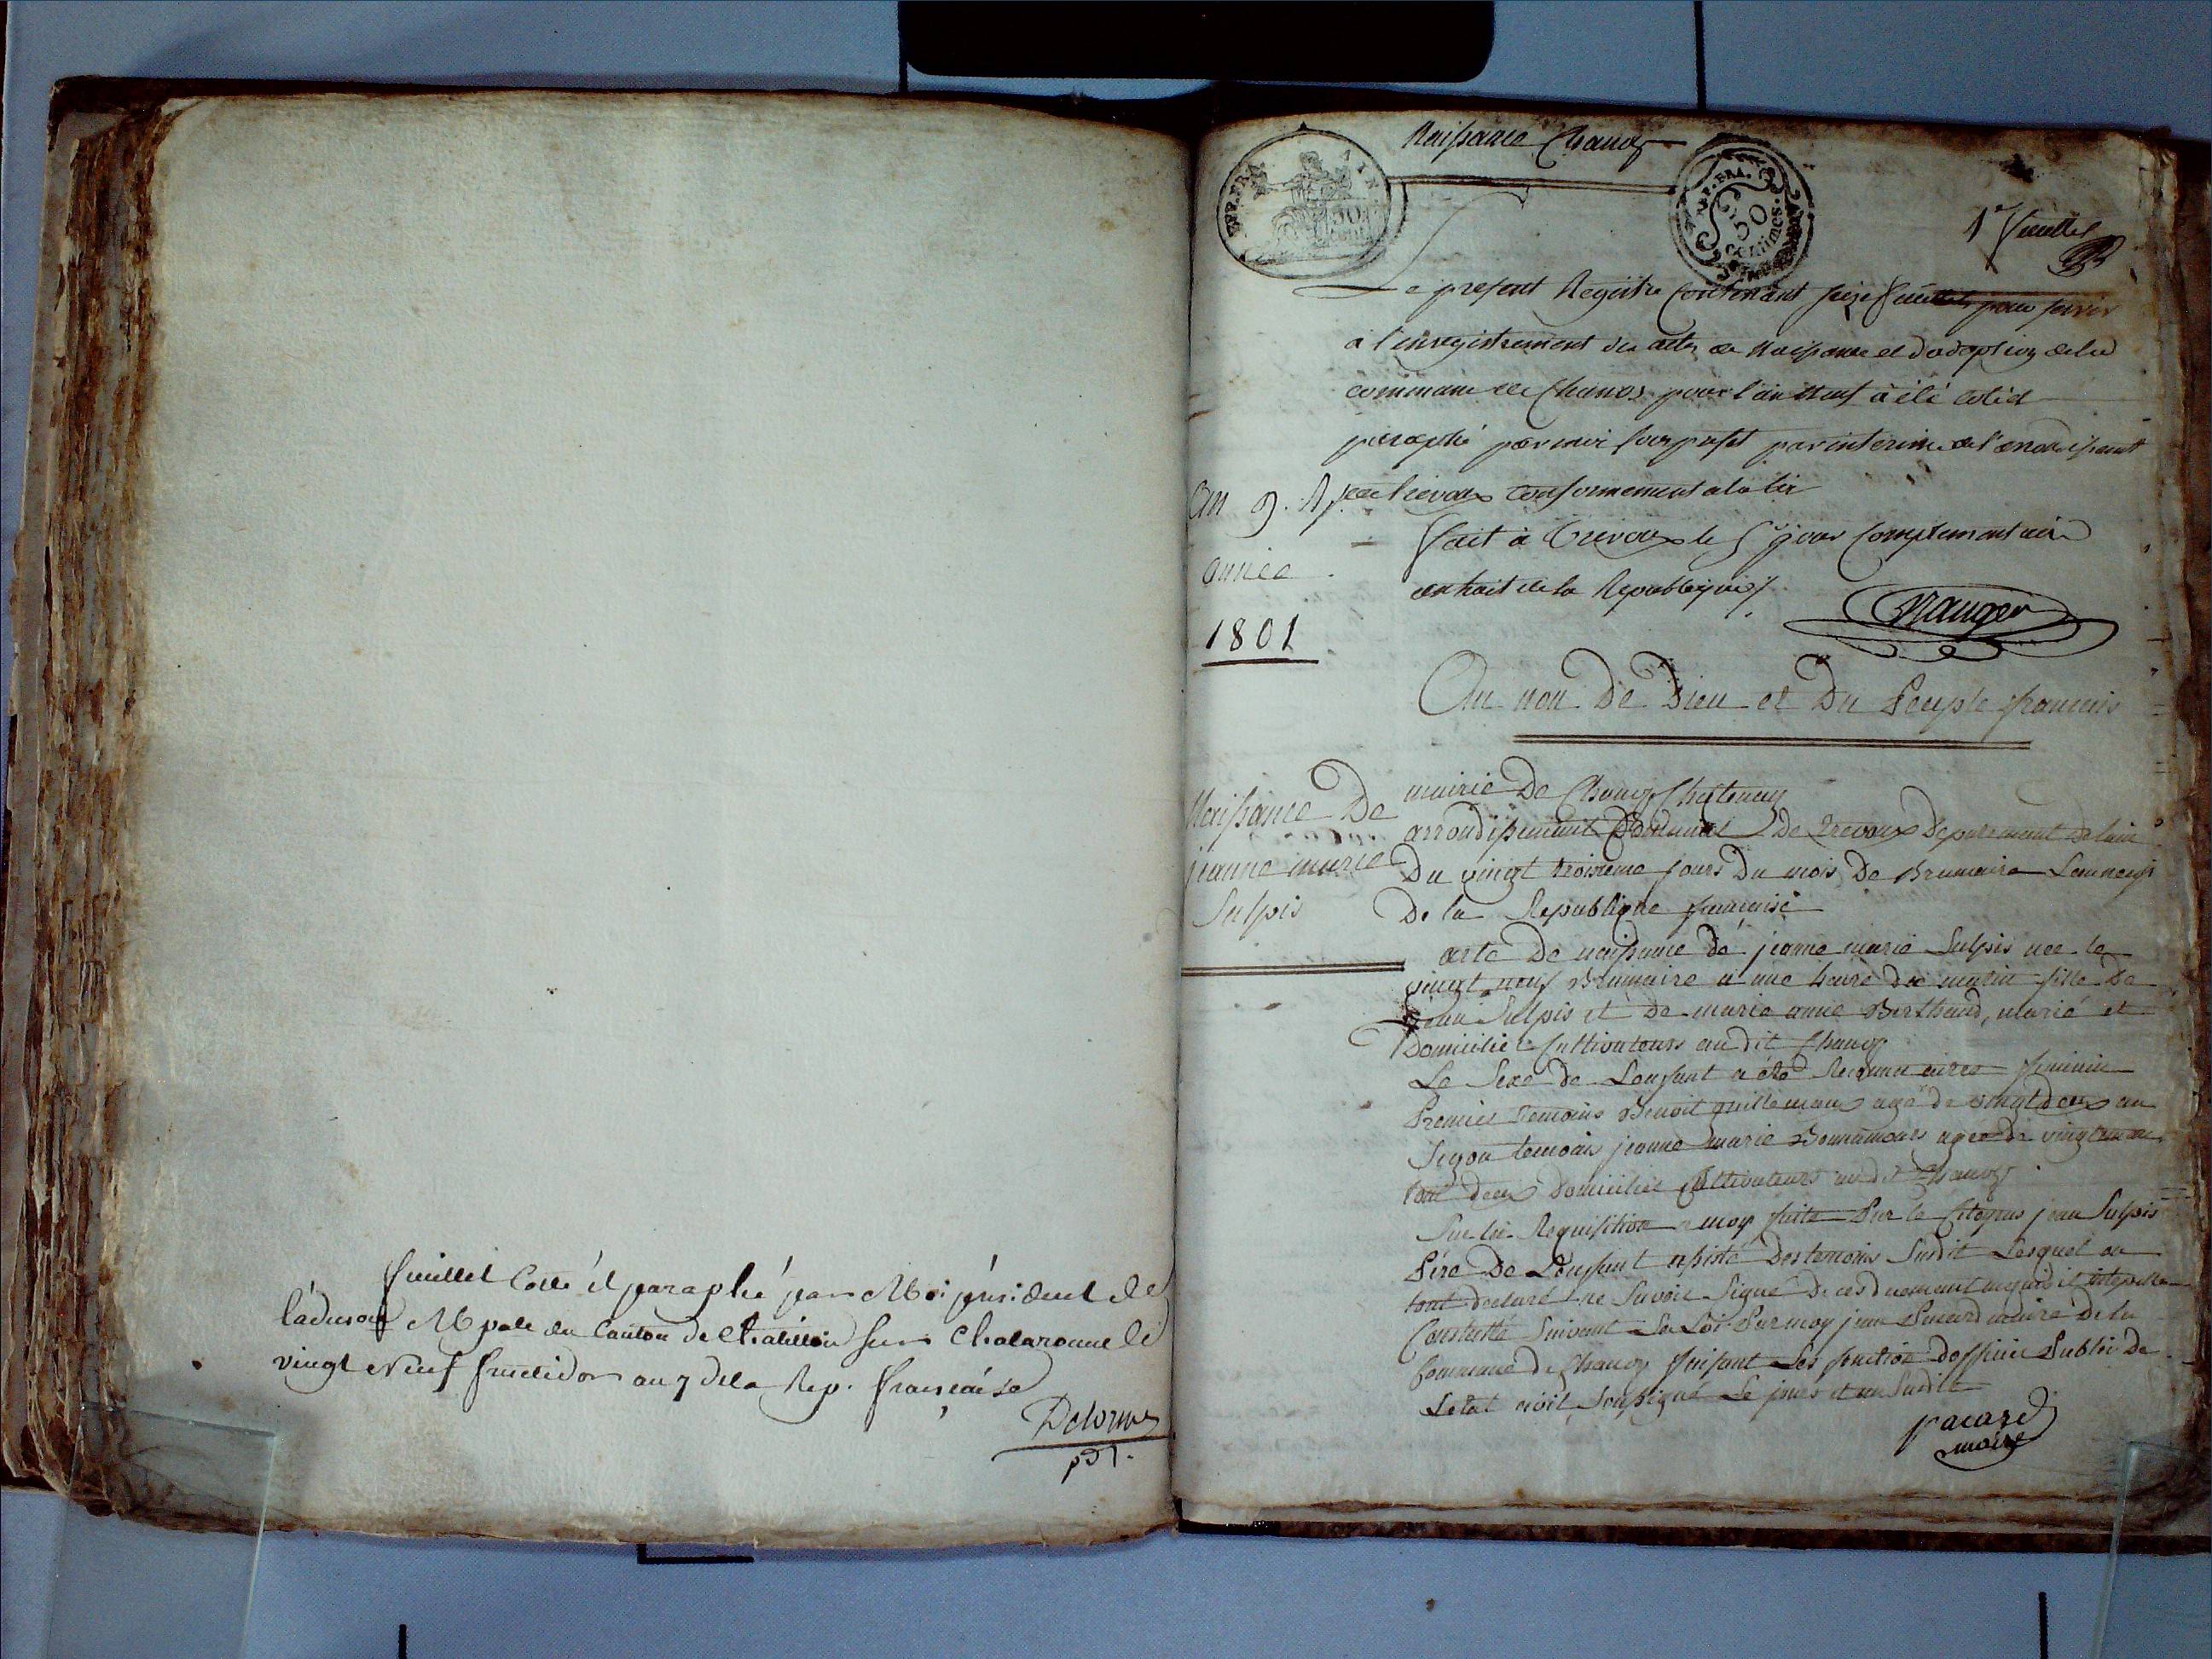 feuillet Cotté et paraphé par Moi président de
l'adu͠on Mpale du Canton de Chatillon sur Chalaronne le
vingt Neuf fructidor an 7 dela Rep. française
Delorme
pdt.
Naissance Chanoz
REP. FRA.
AIN
50
cent.
REP. FRA.
50
centimes.
1er feuillet
Le present Registre Contenant seize feuillets pour servir
à l'enregistrement des actes de Naissance et d'adoption de la
commune de Chanos pour l'an neuf à été cotté et
paraphé par moi sous prefet par interim de l'arrondissement
de Trevoux conformement a la loi
fait à Trevoux le 5e jour Complementaire
an huit de la Republique
An 9.
année
1801
Au non De Dieu et Du Peuple francais
Naissance De
jeanne marie
Sulpis
mairie De Chanoz Chatenay
arrondissement Communal De Trevoux Departement de lain
Du vingt troisieme jours Du mois De Brumaire Lan neuf
De la Republique francaise
acte De naissance de jeanne marie Sulpis nee le
vingt neuf Brumaire a une heure du matin fille De
jean Sulpis et De marie anne Berthaud, marié et
Domicilié Cultivateurs audit Chanoz
Le Sexe de Lenfant a été Reconnu etre feminin
Premier Temoins Benoit guillemaux agé de vingt deux an
Segon temoin jeanne marie Bonnamours agee de vingt
tout deux Domicilié Cultivateurs audit Chanoz
Sur la Requisition a moy faite Par le Citoyens jean Sulpis
Pére De Lenfant assisté Des temoins Susdit Lesquel on
tout declaré ne Savoir Signé De ces duement requis et interpellé
Constatté Suivant La Loi Par moy jean Pacard maire De la
Commune de Chanoz faisant Les fonction Dofficier Public De
Letat civil Soussigné Le jours et an Susdit
pacard
maire